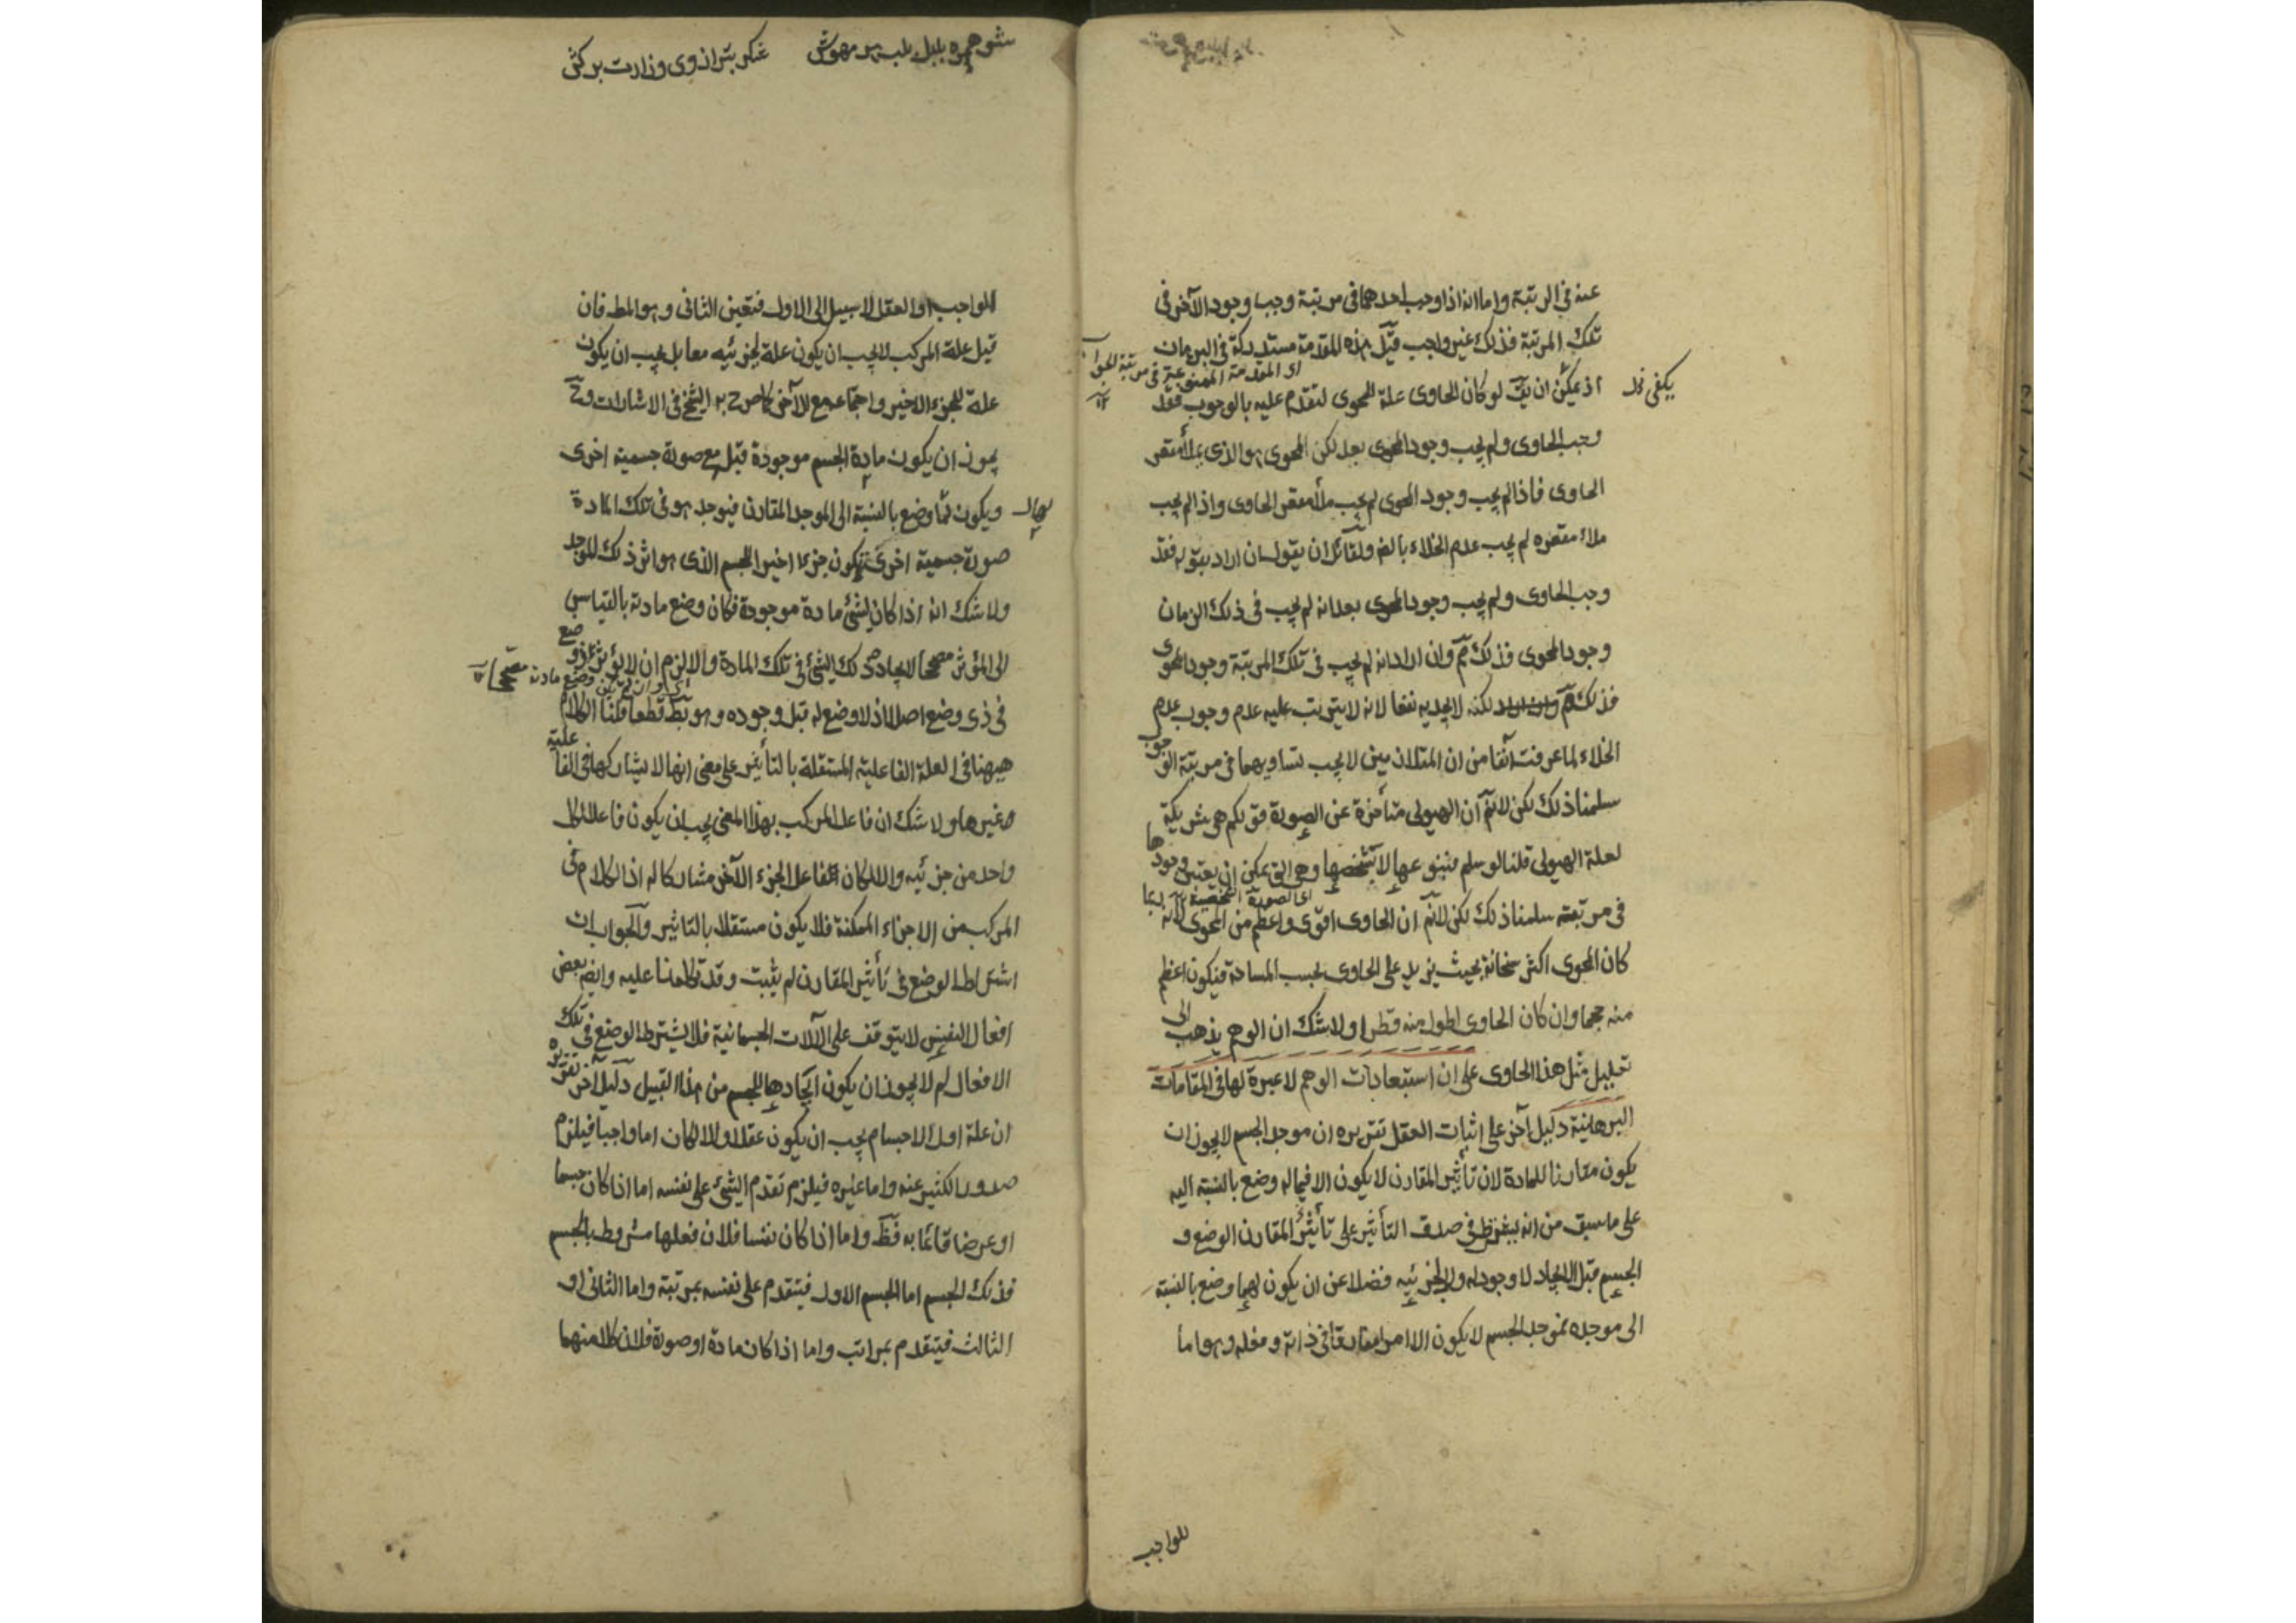 عنه فى الرتبة واما انه اذا وجب احدهما فى مرتبة وجب وجود الآخر فى
تلك المرتبة فذلك غير واجب قيل هذه المقدمة مستدركة فى البرهان
اى المقدمة الممنوعة فى مرتبة
يكفى
اذ يمكن ان يقٓ لو كان الحاوى علة للمحوى لتقدم عليه بالوجوب فقد
وجب الحاوى ولم يجب وجود المحوى بعد لكن المحوى هو الذى يملأ مقعر
الحاوى فاذا لم يجب وجود المحوى لم يجب ملأ مقعر الحاوى واذا لم يجب
ملاء مقعره لم يجب عدم الخلاء بالضه ولقائل ان يقول ان اراد بقوله فقد
وجب الحاوى ولم يجب وجود المحوى بعد انه لم يجب فى ذلك الزمان
وجود المحوى فذلك مٓم وان اراد انه لم يجب فى تلك المرتبة وجود المحوى
فذلك مٓ لكنه لا يجديه نفعا لانه لا يترتب عليه عدم وجوب عدم
الخلاء لما عرفت آنفا من ان المتلازمين لا يجب تساويهما فى مرتبة الوجوب
سلمنا ذلك لكن لانٓم ان الهيولى متأخرة عن الصورة قولكم هى شريكة
لعلة الهيولى قلنا لو سلم فبنوعها لا بتشخصها وهى التى يمكن ان يعتبر وجودها
اى الصورة الشخصية
فى مرتبته سلمنا ذلك لكن لانٓم ان الحاوى اقوى واعظم من المحوى لانه ربما
كان المحوى اكثر سخانة بحيث يزيد على الحاوى بحسب المساحة فيكون اعظم
منه حجما وان كان الحاوى اطول منه قطرا ولا شك ان الوهم يذهب الى
تعليل مثل هذا الحاوى على ان استبعادات الوهم لا عبرة لها فى المقامات
البرهانية دليل آخر على اثبات العقل تقريره ان موجد الجسم لا يجوز ان
يكون مقارنا للمادة لان تأثير المقارن لا يكون الا فيما له وضع بالنسبة اليه
على ما سبق من انه يشترط فى صدق التأثير على تأثير المقارن الوضع و
الجسم قبل الايجاد لا وجود له ولا لجزئيه فضلا عن ان يكون لهما وضع بالنسبة
الى موجده فموجد الجسم لا يكون الا امرا مفارقا فى ذاته وفعله وهو اما
للواجب
بتر از وى وزارت بر كش
الواجب او العقل لا سبيل الى الاول فتعين الثانى وهو المط فان
قيل علة المركب لا يجب ان يكون علة لجزئيه معا بل يجب ان يكون
علة للجزء الاخير واجتماعه مع الآخر كما صرح به الشيخ فى الاشارات وح
يجوز ان يكون مادة الجسم موجودة قبل مع صورة جسمية اخرى
ويكون لها وضع بالنسبة الى الموجد المقارن فيوجد هو فى تلك المادة
صورة جسمية اخرى تكون جزءا اخيرا للجسم الذى هو اثر ذلك الموجد
ولا شك انه اذا كان لشئ مادة موجودة فكان وضع مادته بالقياس
الى المؤثر مصححا لايجاد ذلك الشئ فى تلك المادة والا لزم ان لا يؤثر ذو وضع
اى وان لم يكن وضع مادته مصححا
فى ذى وضع اصلا اذ لا وضع له قبل وجوده وهو بط قطعا قلنا الكلام
هيهنا فى العلة الفاعلية المستقلة بالتأثير على معنى انها لا يشاركها فى الفاعلية
غيرها ولا شك ان فاعل المركب بهذا المعنى يجب ان يكون فاعلا لكل
واحد من جزئيه والا لكان الفاعل الجزء الآخر مشاركا له اذ الكلام فى
المركب من الاجزاء الممكنة فلا يكون مستقلا بالتاثير والجواب ان
اشتراط الوضع فى تأثير المقارن لم يثبت وقد تكلمنا عليه وايضه بعض
افعال النفس لا يتوقف على الآلات الجسمانية فلا يشترط الوضع فى تلك
الافعال لم لا يجوز ان يكون ايجادها للجسم من هذا القبيل دليل آخر تقريره
ان علة اول الاجسام يجب ان يكون عقلا والا لكان اما واجبا فيلزم
صدور الكثير عنه واما غيره فيلزم تقدم الشئ على نفسه اما اذا كان جسما
او عرضا قائما به فظٓ واما اذا كان نفسا فلان فعلها مشروط بالجسم
فذلك الجسم اما الجسم الاول فيتقدم على نفسه بمرتبة واما الثانى او
الثالث فيتقدم بمراتب واما اذا كان مادة او صورة فلان كلا منهما